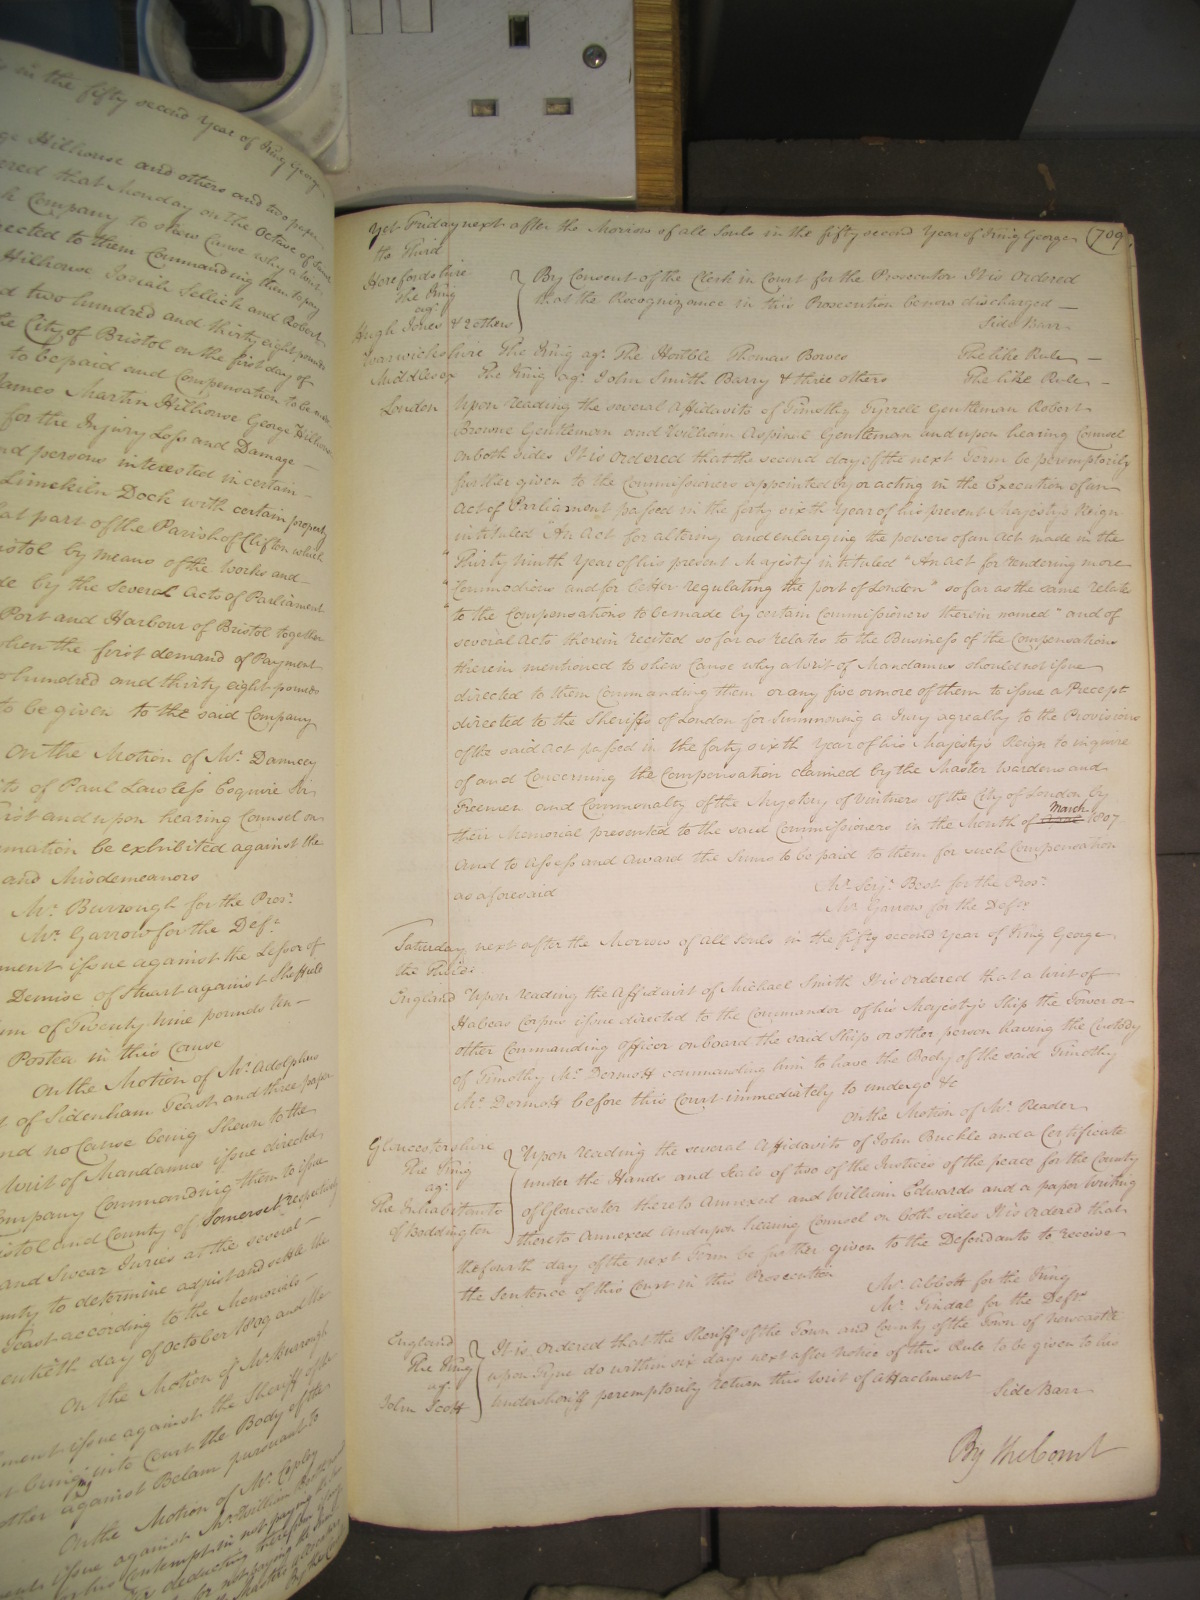 in the fifty second Year of King George
Hilhouse and others and two paper
ered that Monday on the Octave of Saint
Company to shew Cause why a writ
rected to them Commanding them to pay
Hilhouse Josiah Sellick and Robert
d two hundred and thirty eight pounds
the City of Bristol on the first day of
to be paid and Compensation to be made
James Martin Hilhouse George Hilhouse
for the Injury Loss and Damage
nd persons interested in certain
Limekiln Dock with certain property
at part of the Parish of Clifton which
istol by means of the Works and
de by the several Acts of Parliament
Port and Harbour of Bristol together
when the first demand of Payment
hundred and thirty eight pounds
to be given to the said Company
On the Motion of Mr. Dauncey
its of Paul Lawless Esquire Sir
first and upon hearing Counsel on
rmation be exhibited against the
and Misdemeanors
Mr. Burrough for the Pros.r
Mr. Garrow for the Def.t
ment issue against the Lessor of
Demise of Stuart against Sheffield
um of Twenty Nine pounds
Posted in this Cause
On the Motion of Mr. Adolphus
t of Sidenham Teast and three paper
nd no Cause being Shewn to the
Writ of Mandamus issue directed
Company Commanding them to issue
istol and County of Somerset respectively
and Swear Juries at the several
unty to determine adjust and settle the
Teast according to the Memorials
entieth day of October 1809 and the
On the Motion of Mr. Burrough
ment issue against the Sheriff of the
bring into Court the Body of the
other against Belam pursuant to
On the Motion of Mr. Copley
ment issue against Mr. William
his Contempt in not paying
deducting therefrom
for not paying the
By the Court
Yet Friday next after the Morrow of all Souls in the fifty second Year of King George (709
the Third
Herefordshire
The King
ag.t
Hugh Jones & 2 others
By Consent of the Clerk in Court for the Prosecutor It is Ordered
that the Recognizance in this Prosecution be now discharged
Side Barr
Warwickshire The King ag.t The Honble Thomas Bowes The like Rule
Middlesex The King ag.t John Smith Barry & three others The like Rule
London Upon reading the several Affidavits of Timothy Tyrrell Gentleman Robert
Browne Gentleman and William Aspinal Gentleman and upon hearing Counsel
on both sides It is Ordered that the second day of the next Term be peremptorily
further given to the Commissioners appointed by or acting in the Execution of an
Act of Parliament passed in the forty sixth Year of his present Majesty's Reign
intituled "An Act for altering and enlarging the powers of an Act made in the
" Thirty Ninth Year of his present Majesty intituled "An Act for rendering more
" Commodious and for better regulating the port of London" so far as the same relates
" to the Compensations to be made by certain Commissioners therein named" and of
several Acts therein recited so far as relates to the Business of the Compensations
therein mentioned to shew Cause why a Writ of Mandamus should not issue
directed to them Commanding them or any five or more of them to issue a Precept
directed to the Sheriffs of London for Summoning a Jury agreably to the Provisions
of the said Act passed in the forty sixth Year of his Majesty's Reign to inquire
of and Concerning the Compensation claimed by the Master Wardens and
Freemen and Commonalty of the Mystery of Vintners of the City of London by
their Memorial presented to the said Commissioners in the Month of March 1807
and to assess and award the Sums to be paid to them for such Compensation
as aforesaid
Mr. Serj.t Best for the Pros.r
Mr. Garrow for the Def.ts
Saturday next after the Morrow of all Souls in the fifty second Year of King George
the Third
England Upon reading the Affidavit of Michael Smith It is ordered that a Writ of
Habeas Corpus issue directed to the Commander of his Majesty's Ship the Tower or
other Commanding Officer on board the said Ship or other person having the Custody
of Timothy Mc.Dermott commanding him to have the Body of the said Timothy
Mc.Dermott before this Court immediately to undergo &c
On the Motion of Mr. Reader
Gloucestershire
The King
ag.t
The Inhabitants
of Boddington
Upon reading the several Affidavits of John Buckle and a Certificate
under the Hands and Seals of two of the Justices of the peace for the County
of Gloucester thereto Annexed and William Edwards and a paper Writing
thereto Annexed And upon hearing Counsel on both sides It is ordered that
the fourth day of the next Term be further given to the Defendants to receive
the Sentence of this Court in this Prosecution
Mr. Abbott for the King
Mr. Tindal for the Def.ts
England
The King
ag.t
John Scott
It is ordered that the Sheriff of the Town and County of the Town of Newcastle
upon Tyne do within six days next after Notice of this Rule to be given to his
undersheriff peremptorily return this Writ of Attachment
Side Barr
By the Court